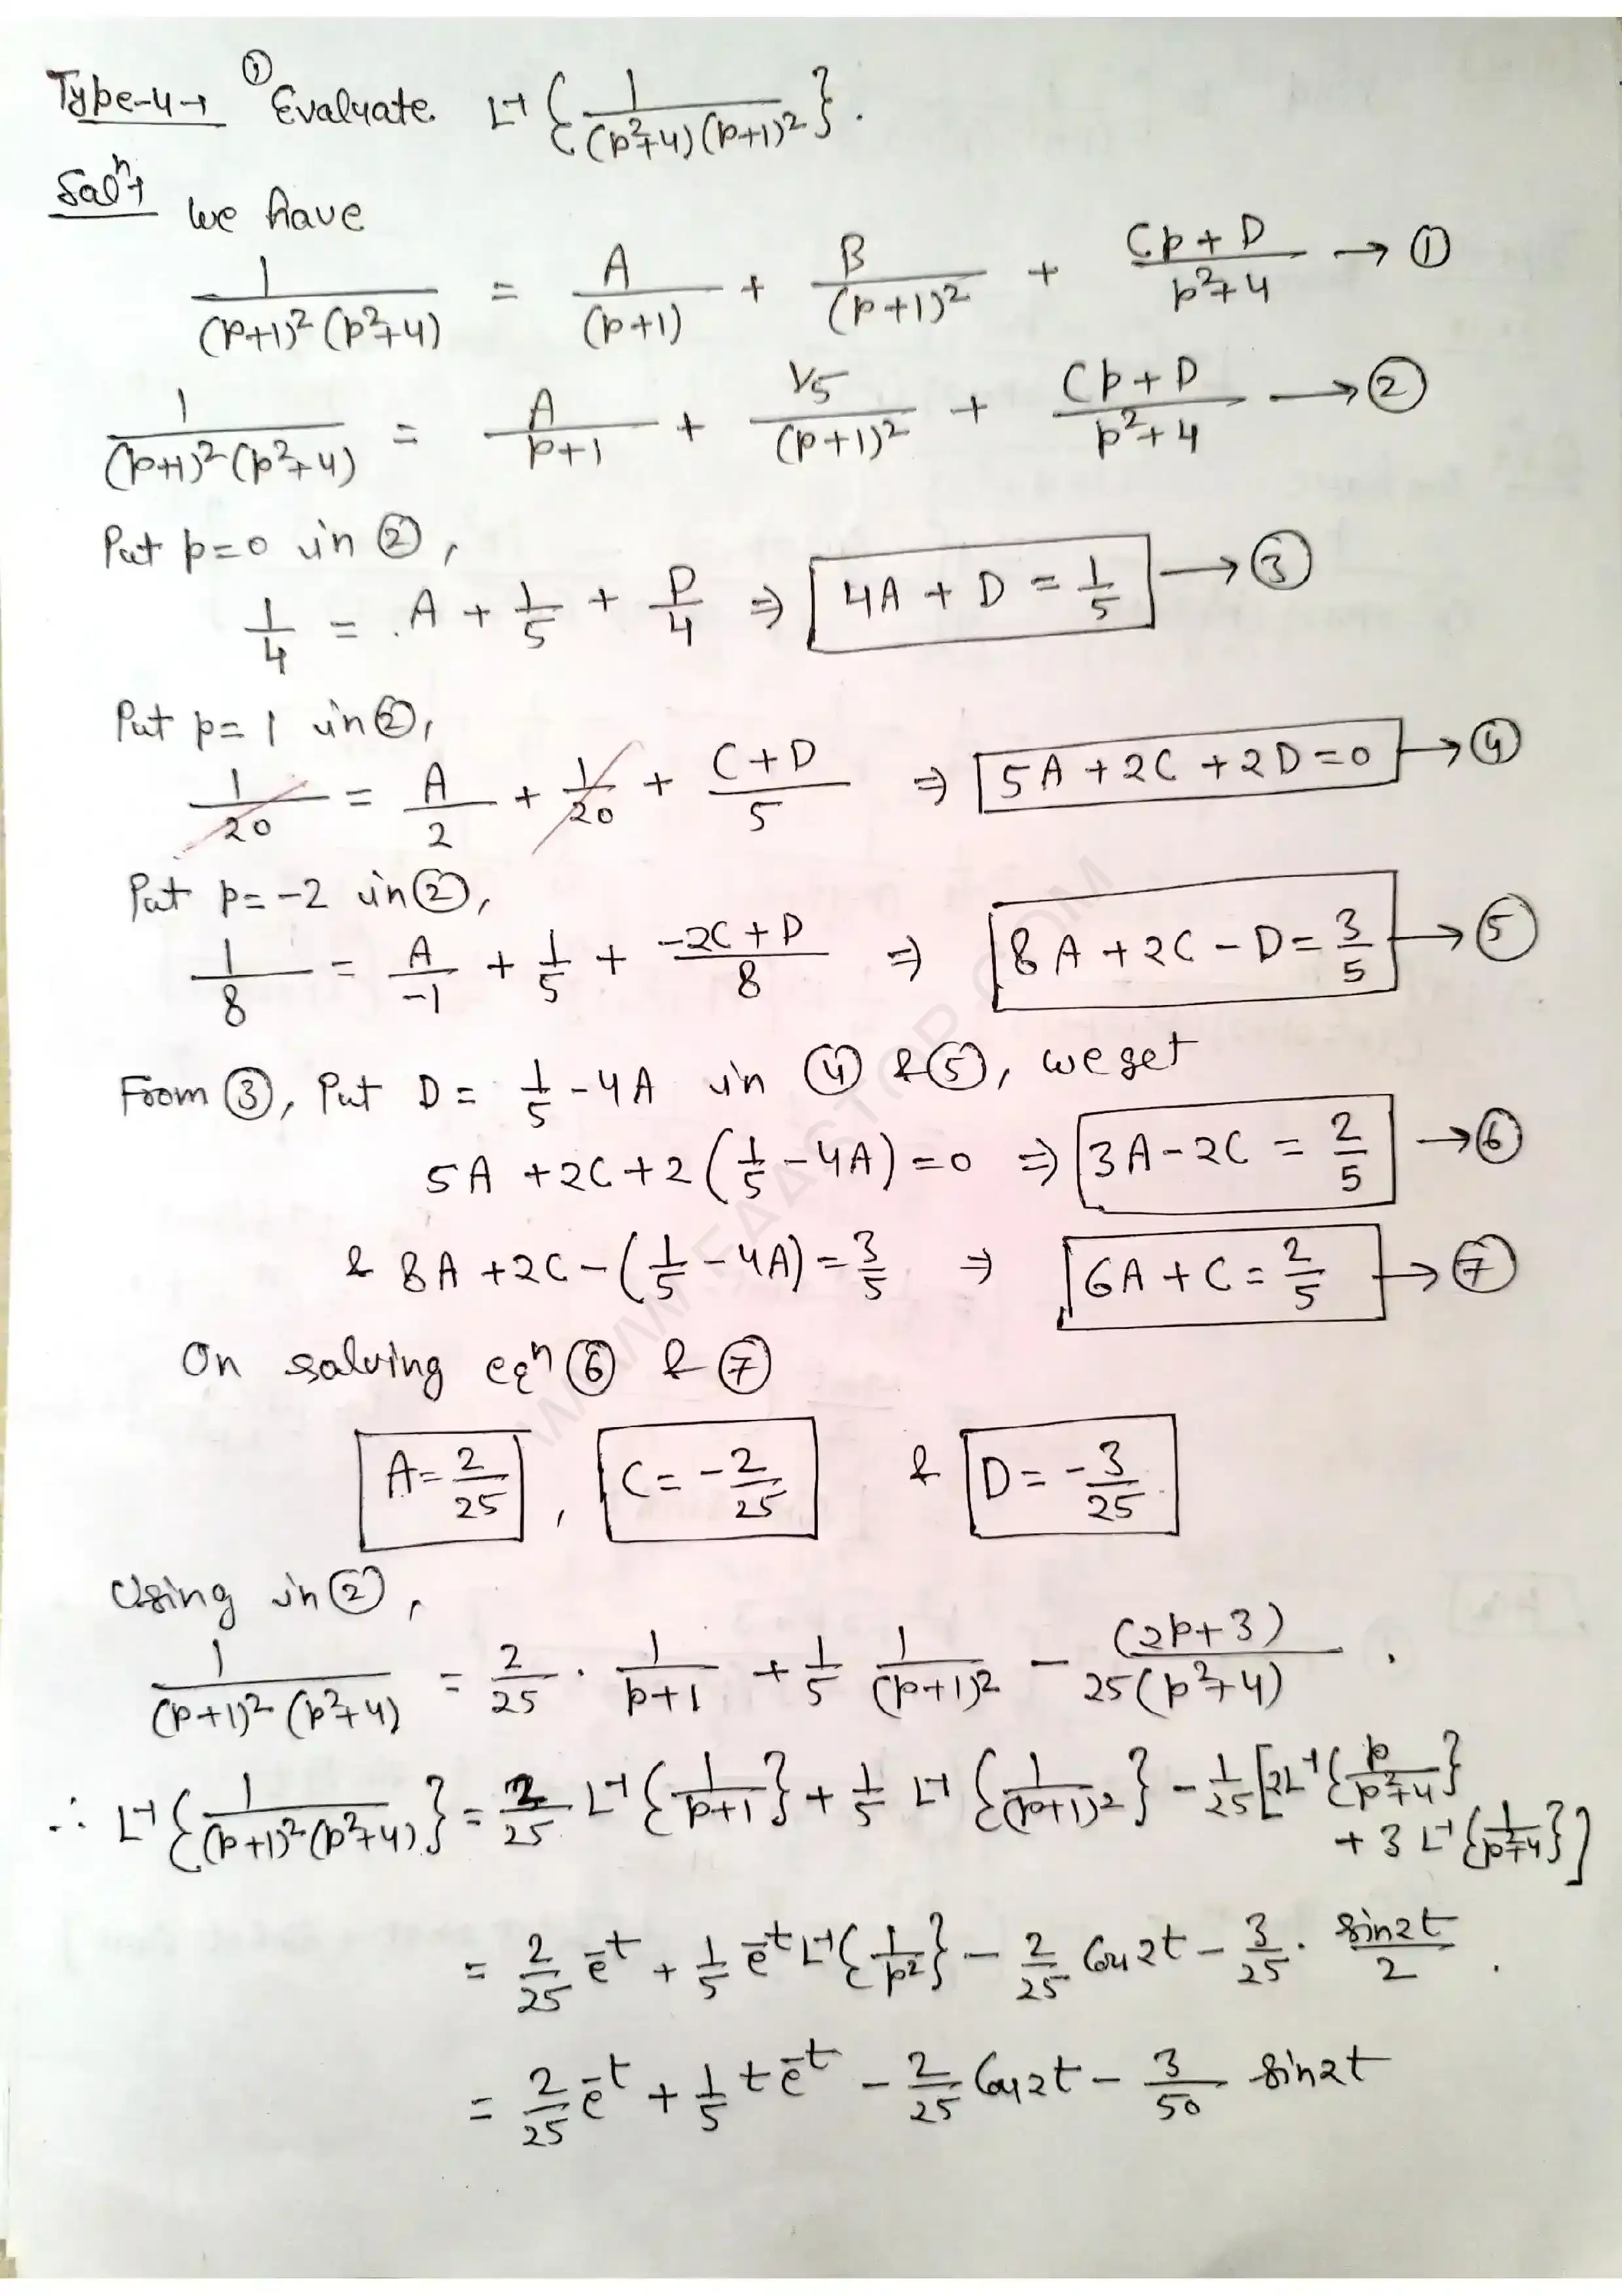 Type-4→ ① Evaluate. L⁻¹{1/((p²+4)(p+1)²)}.
Solⁿ→ We have
1/((p+1)²(p²+4)) = A/(p+1) + B/(p+1)² + (Cp+D)/(p²+4) → ①
1/((p+1)²(p²+4)) = A/(p+1) + (1/5)/(p+1)² + (Cp+D)/(p²+4) → ②
Put p=0 in ②,
1/4 = A + 1/5 + D/4 ⇒ 4A + D = 1/5 → ③
Put p=1 in ②,
1/20 = A/2 + 1/20 + (C+D)/5 ⇒ 5A+2C+2D=0 → ④
Put p=-2 in ②,
1/8 = A/-1 + 1/5 + (-2C+D)/8 ⇒ 8A+2C-D=3/5 → ⑤
From ③, Put D = 1/5 - 4A in ④ & ⑤, we get
5A+2C+2(1/5-4A)=0 ⇒ 3A-2C = 2/5 → ⑥
& 8A+2C-(1/5-4A)=3/5 ⇒ 6A+C=2/5 → ⑦
On solving eqⁿ ⑥ & ⑦
A=2/25, C=-2/25 & D=-3/25
Using in ②,
1/((p+1)²(p²+4)) = 2/25 · 1/(p+1) + 1/5 1/(p+1)² - (2p+3)/(25(p²+4)).
∴ L⁻¹{1/((p+1)²(p²+4))} = 2/25 L⁻¹{1/(p+1)} + 1/5 L⁻¹{1/(p+1)²} - 1/25[2L⁻¹{p/(p²+4)}
+ 3 L⁻¹{1/(p²+4)}]
= 2/25 e⁻ᵗ + 1/5 e⁻ᵗ L⁻¹{1/p²} - 2/25 Cos2t - 3/25 · sin2t/2.
= 2/25 e⁻ᵗ + 1/5 t e⁻ᵗ - 2/25 Cos2t - 3/50 sin2t
WWW.FAASTOP.COM